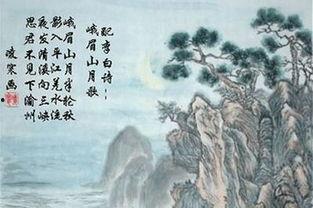 配李白诗：
峨眉山月歌
峨眉山月半轮秋
影入平江羌水流
夜发清溪向三峡
思君不见下渝州